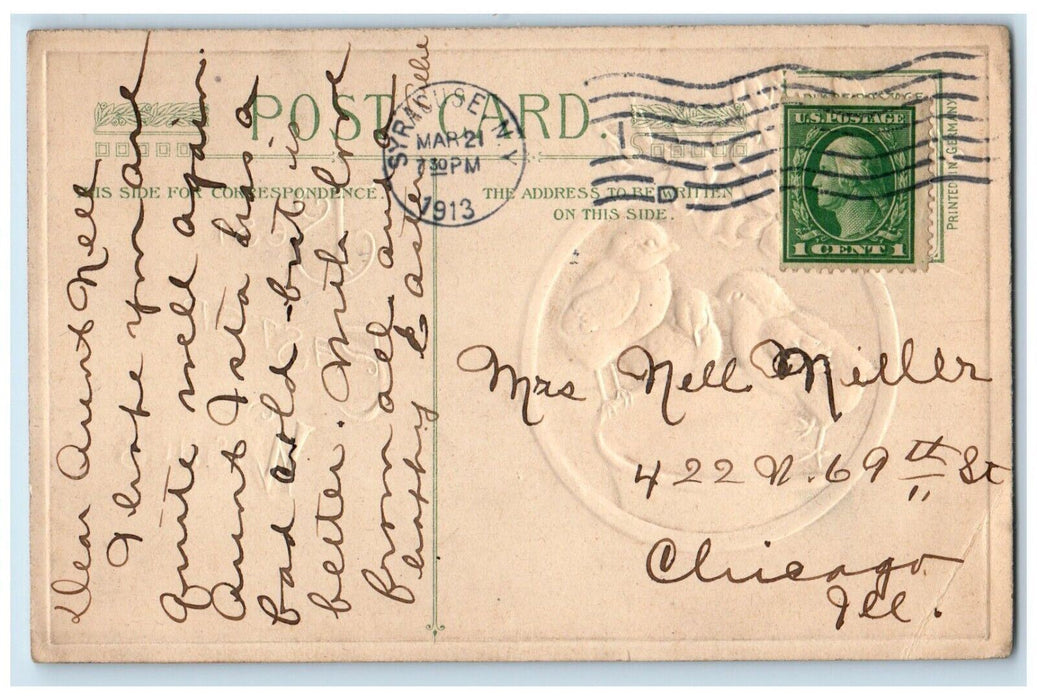 POST CARD
THIS SIDE FOR CORRESPONDENCE.
THE ADDRESS TO BE WRITTEN
ON THIS SIDE.
SYRACUSE, N.Y.
MAR 21
7 30 PM
1913
U.S. POSTAGE
1 CENT 1
PRINTED IN GERMANY
Dear Aunt Nell
I hope you are
quite well again.
Aunt Ista has a
bad cold but is
better. With love
from all and a
happy Easter
Mrs Nell Miller
422 N. 69th St
Chicago
Ill.